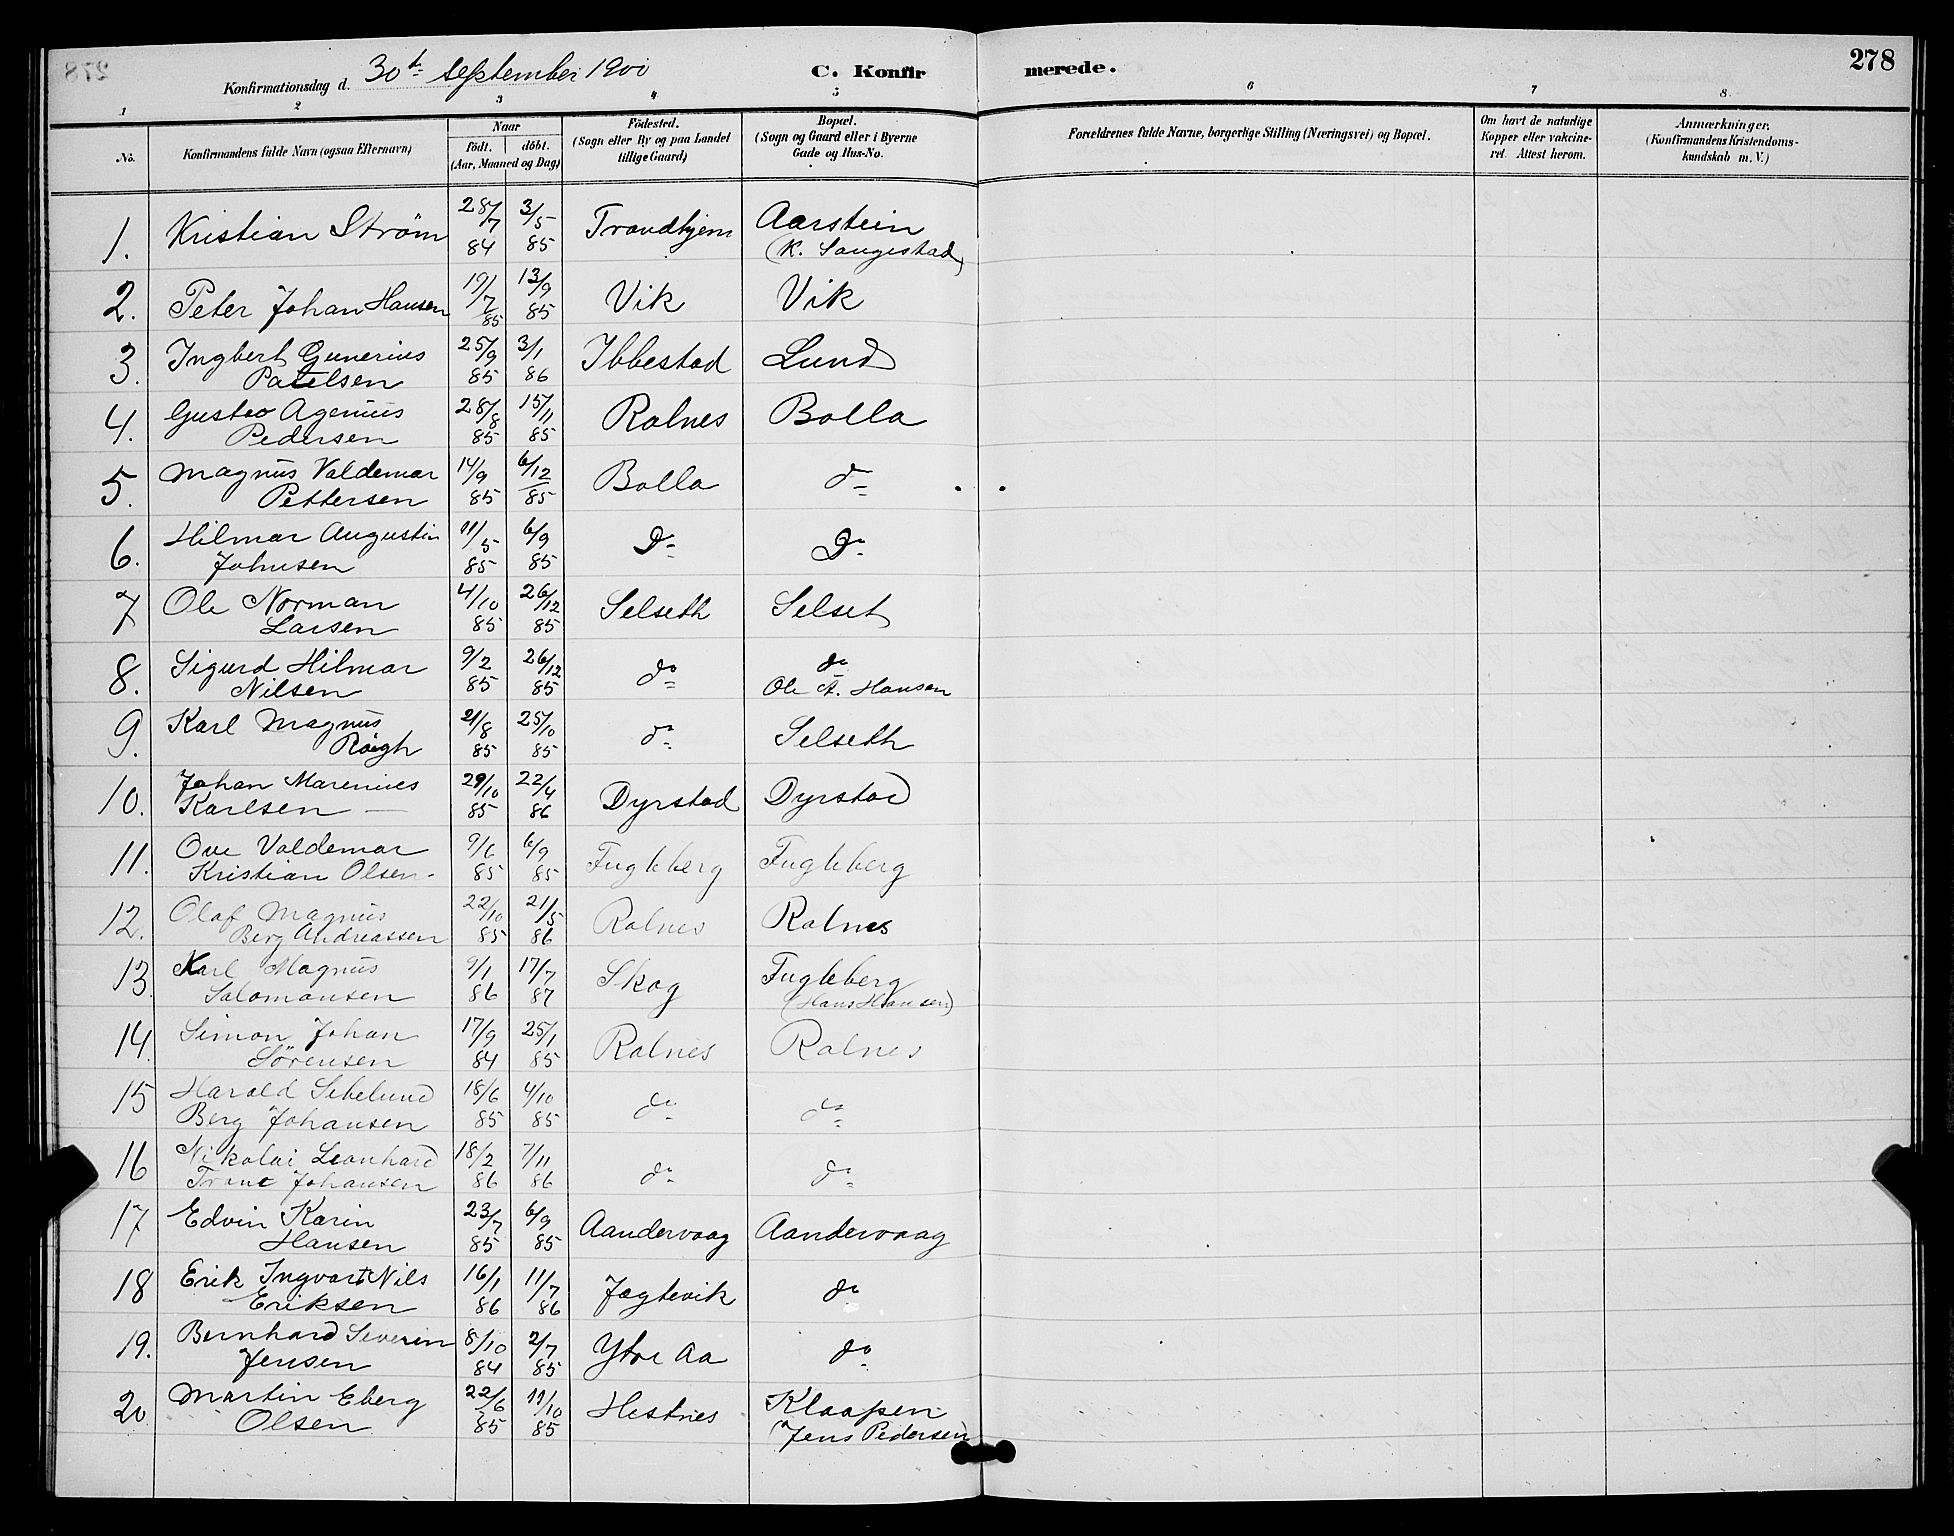 278
Konfirmationsdag d. 30te september 1900
C. Konfirmerede.
1 2 3 4 5 6 7 8
No.
Konfirmandens fulde Navn (ogsaa Efternavn)
Naar
födt. döbt.
(Aar, Maaned og Dag)
Födested.
(Sogn eller By og paa Landet
tillige Gaard)
Bopæl.
(Sogn og Gaard eller i Byerne
Gade og Hus-No.
Forældrenes fulde Navne, borgerlige Stilling (Næringsvei) og Bopæl.
Om havt de naturlige
Kopper eller vakcine-
ret. Attest herom.
Anmærkninger.
(Konfirmandens Kristendoms-
kundskab m. V.)
1. Kristian Ström 28/7 84 3/5 85 Trondhjem Aarstein
(K. Sangestad)
2. Peter Johan Hansen 19/7 85 13/9 85 Vik Vik
3. Ingbert Gunerius 25/9 85 3/1 86 Ibbestad Lund
4. Gustav Agenius 28/8 85 15/11 85 Rolnes Bolla
Pedersen
5. Magnus Valdemar 14/9 85 6/12 85 Bolla do
Pettersen
6. Hilmar Augustin 11/5 85 6/9 85 Do Do
Johnsen
7 Ole Norman 4/10 85 26/12 85 Selseth Selset
Larsen
8. Sigurd Hilmar 9/2 85 26/12 85 do do
Nilsen Ole A. Hansen
9. Karl Magnus 21/8 85 25/10 85 do Selseth
Röigh
10. Johan Marenius 29/10 85 22/4 86 Dyrstad Dyrstad
Karlsen
11. Ove Valdemar 9/6 85 6/9 85 Fugleberg Fugleberg
Kristian Olsen
12. Olaf Magnus 22/10 85 21/5 86 Rolnes Rolnes
Berg Andreassen
13 Karl Magnus 9/1 86 17/7 87 Skog Fugleberg
Salomonsen (Hans Hansen)
14. Simon Johan 17/9 84 25/1 85 Rolnes Rolnes
Sörensen
15 Harald Sibelund 18/6 85 4/10 85 do do
Berg Johansen
16 Nikolai Leonhard 18/2 86 7/11 86 do do
Johansen
17 Edvin Karin 23/7 85 6/9 85 Aandervaag Aandervaag
Hansen
18 Erik Ingvart Nils 16/1 86 11/7 86 Jægtevik do
Eriksen
19. Bernhard Severin 8/10 84 2/7 85 Ytre Aa do
Jensen
20 Martin Eberg 22/6 85 11/10 85 Hestnes Klaapen
Olsen (Jens Pedersen)